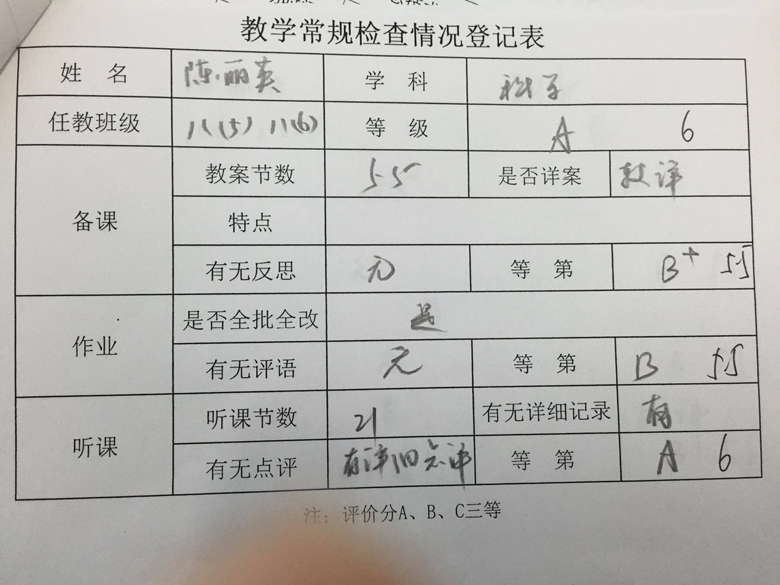 教学常规检查情况登记表
姓 名 陈丽英 学 科 科学
任教班级 八(5) 八(6) 等 级 A 6
备课 教案节数 55 是否详案 较详
特点
有无反思 无 等 第 B+ 5.5
作业 是否全批全改 是
有无评语 无 等 第 B 5.5
听课 听课节数 21 有无详细记录 有
有无点评 等 第 A 6
注：评价分A、B、C三等